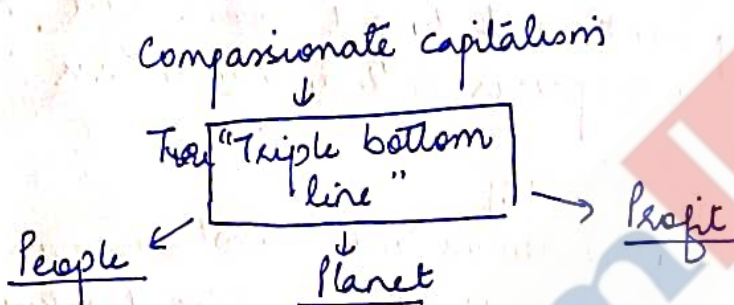 Compassionate capitalism
"Triple bottom
line"
People
Planet
Profit